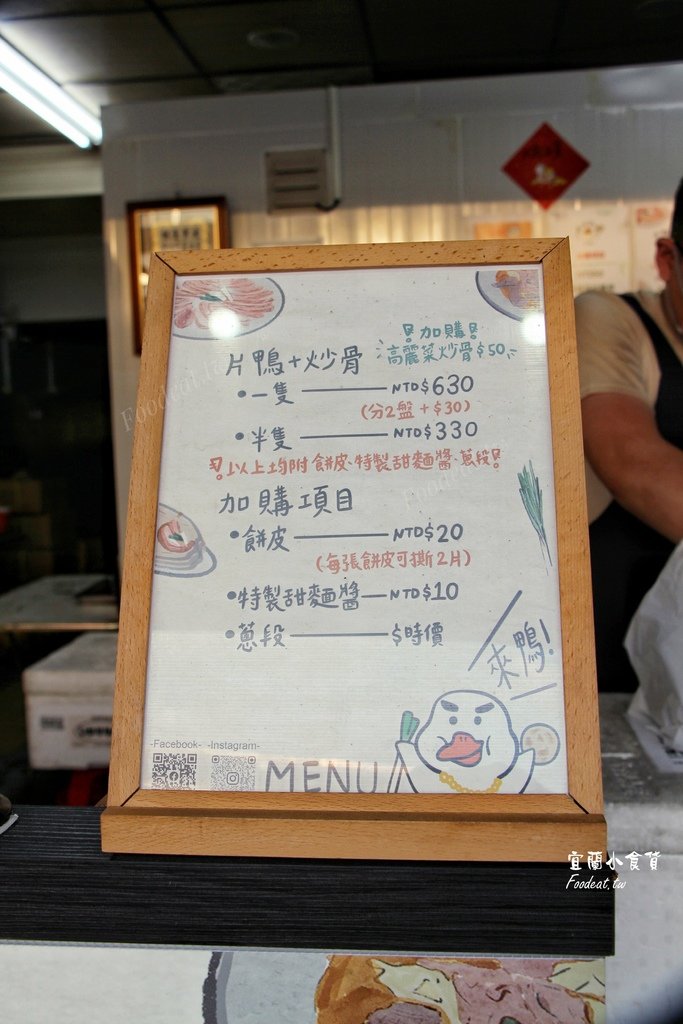 片鴨+炒骨
加購
高麗菜炒骨$50
•一隻 NTD$630
(分2盤+$30)
•半隻 NTD$330
以上均附餅皮、特製甜麵醬、蔥段
加購項目
•餅皮 NTD$20
(每張餅皮可撕2片)
•特製甜麵醬 NTD$10
•蔥段 $時價
來鴨!
-Facebook- -Instagram-
MENU
宜蘭小食貨
Foodeat.tw